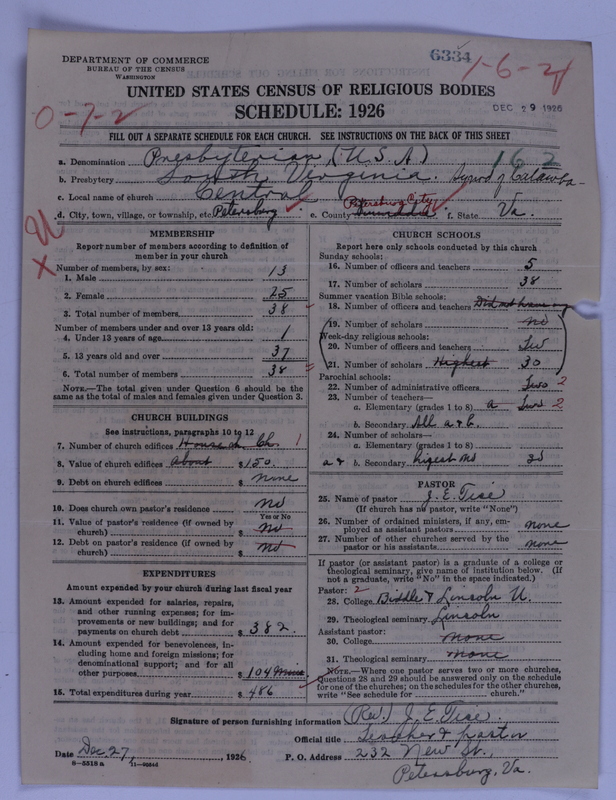 DEPARTMENT OF COMMERCE
BUREAU OF THE CENSUS
WASHINGTON
6334
1-6-21
UNITED STATES CENSUS OF RELIGIOUS BODIES
SCHEDULE: 1926
DEC 29 1926
0-7-2
FILL OUT A SEPARATE SCHEDULE FOR EACH CHURCH. SEE INSTRUCTIONS ON THE BACK OF THIS SHEET
a. Denomination Presbyterian (U.S.A) 162
b. Presbytery South Virginia. Synod of Catawba
c. Local name of church Central
d. City, town, village, or township, etc. Petersburg e. County Petersburg City f. State Va.
MEMBERSHIP
Report number of members according to definition of member in your church
Number of members, by sex:
1. Male 13
2. Female 25
3. Total number of members 38
Number of members under and over 13 years old:
4. Under 13 years of age 1
5. 13 years old and over 37
6. Total number of members 38
NOTE.—The total given under Question 6 should be the same as the total of males and females given under Question 3.
CHURCH BUILDINGS
See instructions, paragraphs 10 to 12
7. Number of church edifices House Ch. 1
8. Value of church edifices About $150.
9. Debt on church edifices $ none
10. Does church own pastor's residence no
Yes or No
11. Value of pastor's residence (if owned by church) $ no
12. Debt on pastor's residence (if owned by church) $ no
EXPENDITURES
Amount expended by your church during last fiscal year
13. Amount expended for salaries, repairs, and other running expenses; for improvements or new buildings; and for payments on church debt $ 382.
14. Amount expended for benevolences, including home and foreign missions; for denominational support; and for all other purposes $ 104
15. Total expenditures during year $ 486
CHURCH SCHOOLS
Report here only schools conducted by this church
Sunday schools:
16. Number of officers and teachers 5
17. Number of scholars 38
Summer vacation Bible schools:
18. Number of officers and teachers Did not have any
19. Number of scholars no
Week-day religious schools:
20. Number of officers and teachers Two
21. Number of scholars Highest 30
Parochial schools:
22. Number of administrative officers Two 2
23. Number of teachers—
a. Elementary (grades 1 to 8) a Two 2
b. Secondary a & b.
24. Number of scholars—
a. Elementary (grades 1 to 8)
a & b. Secondary 30
PASTOR
25. Name of pastor J. E. Tice
(If church has no pastor, write "None")
26. Number of ordained ministers, if any, employed as assistant pastors none
27. Number of other churches served by the pastor or his assistants none
If pastor (or assistant pastor) is a graduate of a college or theological seminary, give name of institution below. (If not a graduate, write "No" in the space indicated.)
Pastor: 2
28. College Biddle & Lincoln U.
29. Theological seminary Lincoln
Assistant pastor:
30. College none
31. Theological seminary none
NOTE.—Where one pastor serves two or more churches, Questions 28 and 29 should be answered only on the schedule for one of the churches; on the schedules for the other churches, write "See schedule for church."
Signature of person furnishing information (Rev.) J. E. Tice.
Official title Teacher & pastor
Date Dec. 27, 1926 P. O. Address 232 New St.,
8-5518 a
Petersburg, Va.